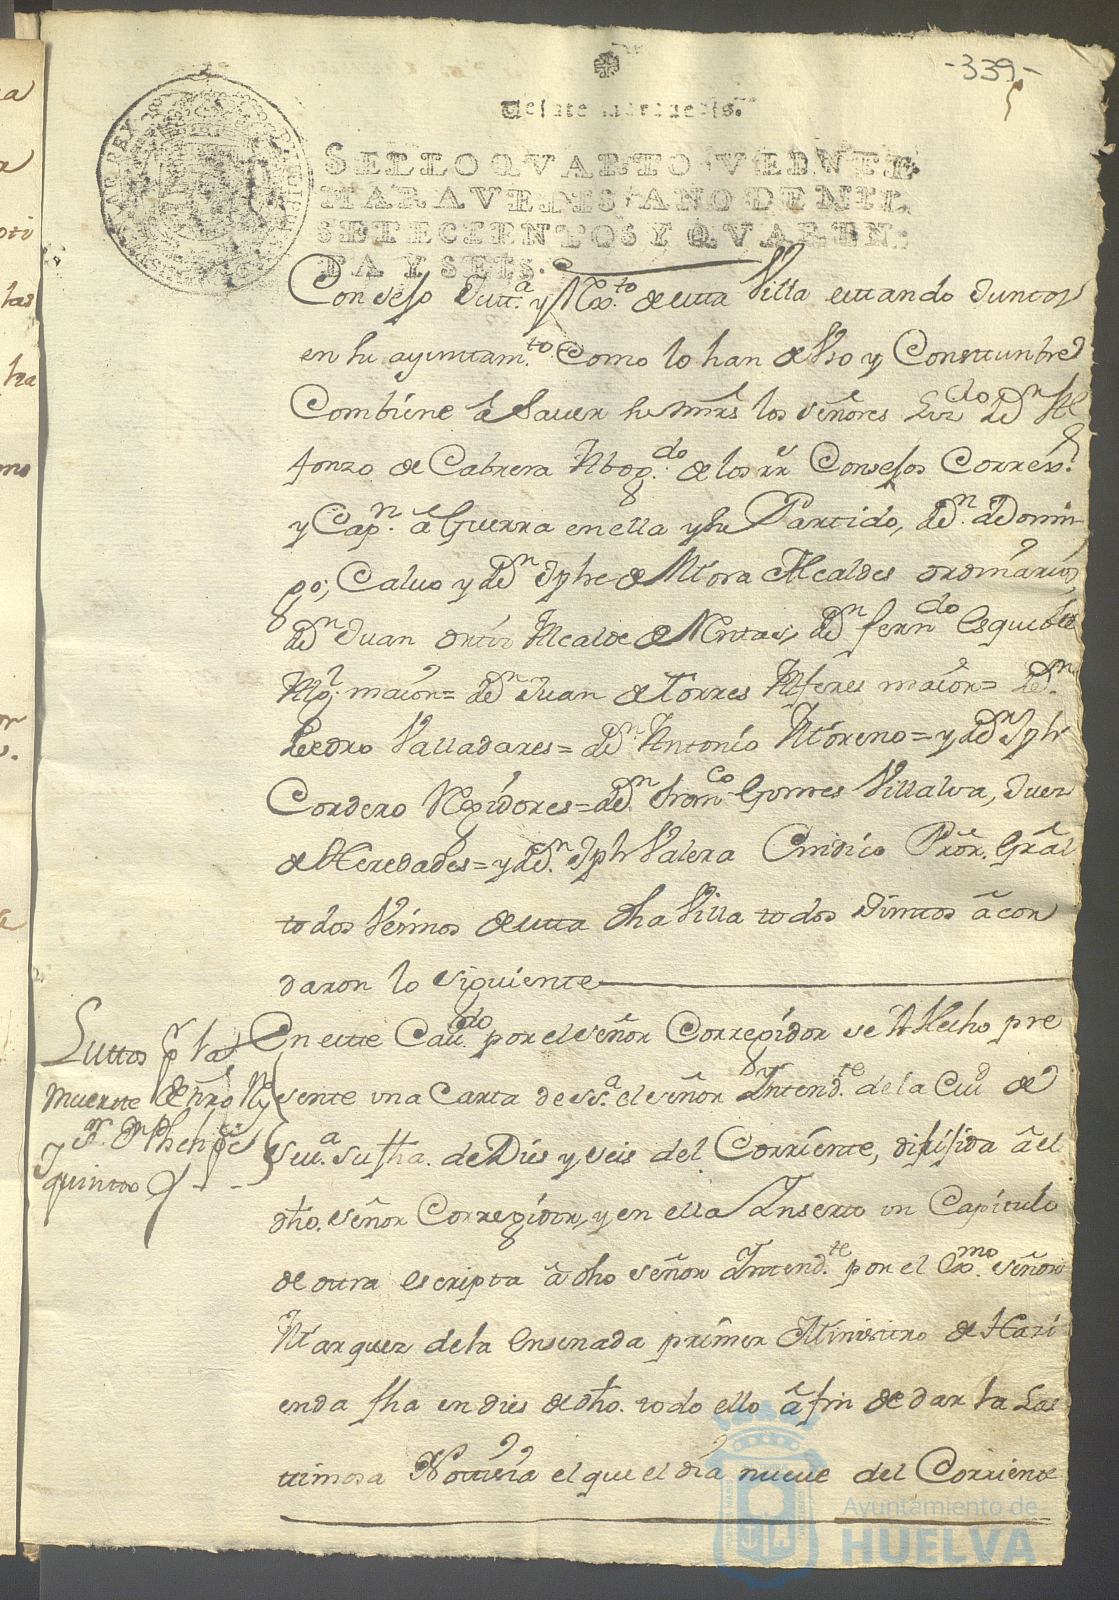 -339-
Veinte maravedis.
SELLO QVARTO, VEINTE
MARAVEDIS, AÑO DE MIL
SETECIENTOS Y QVAREN-
TA Y SEIS.
Consejo Justt.ª y Rex.to de esta Villa estando Juntos
en su ayuntam.to Como lo han de Vso y Constumbre
Combiene â Saver sus mrs los señores Liz.do Dn Al
fonzo de Cabrera Abog.do de los rr.s Consejos Correx.r
y Cap.n â Guerra en ella y su Partido, Dn. Domin-
go; Calvo y Dn Jphe de Mora Alcaldes ordinarios,
Dn Juan ortiz Alcalde de Mestas, Dn fern.do Esquibel
Alg.l maior= Dn Juan de Torres Alferes maior= Dn.
Pedro Valladares= Dn Antonio Moreno= y Dn Jph
Cordero Rexidores= Dn. fran.co Gomes Villalva, Juez
de Heredades= y Dn. Jph Valera Cindico Pror. Gral
todos Vesinos de esta dha Villa todos Juntos âcor
daron lo siguiente
Luttos p.r la
muerte de nro Rey
y Sr. Dn Phelipe
quinto
En este Cav.do por el señor Corregidor se â Hecho pre
sente vna Carta de S.ª el señor Intend.te de la Ciud de
Sev.ª su fha. de Dies y seis del Corriente, dirijida â el
dho. señor Corregidor, y en ella Inserto vn Capitulo
de otra escripta â dho señor Intend.te por el Ex.mo señor
Marquez de la Ensenada primer Ministro de Hazi
enda fha en dies de dho. todo ello â fin de dar la Las
timosa Notisia el que el dia nueve del Corriente
Ayuntamiento de
HUELVA